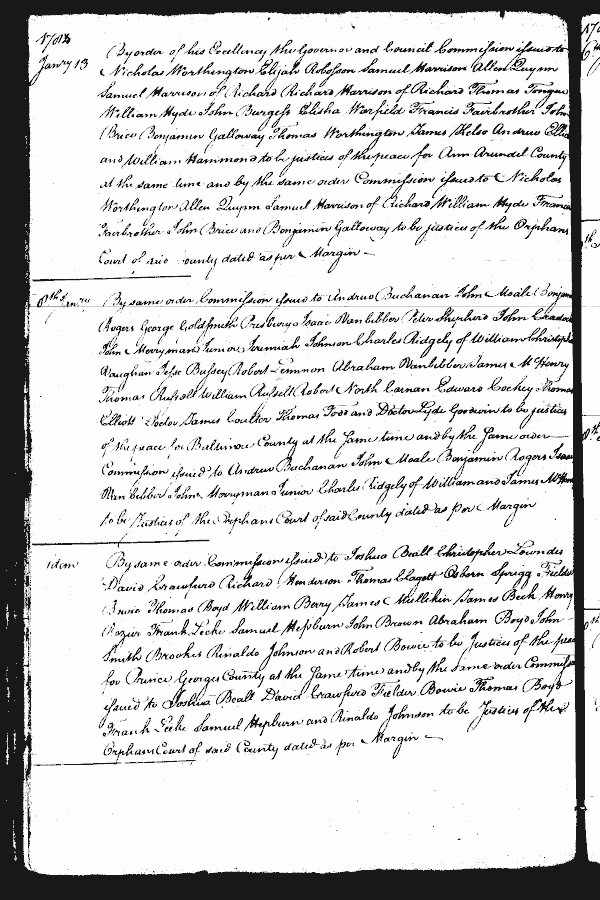 Janry 13
By order of his Excellency the Governor and Council Commission issued to
Nicholas Worthington Elijah Robosson Samuel Harrison Allen Quynn
Samuel Harrison of Richard Richard Harrison of Richard Thomas Tongue
William Hyde John Burgess Elisha Warfield Francis Fairbrother John
Brice Benjamin Galloway Thomas Worthington James Kelso Andrew
and William Hammond to be justices of the peace for Ann Arundel County
at the same time and by the same order Commission issued to Nicholas
Worthington Allen Quynn Samuel Harrison of Richard William Hyde
Fairbrother John Brice and Benjamin Galloway to be justices of the Orphans
Court of said County dated as per Margin
By same order Commission issued to Andrew Buchanan John Moale
Rogers George Goldsmith Presbury Isaac Vanbibber Peter Shepherd John
John Merryman Junior Jeremiah Johnson Charles Ridgely of William
Vaughan Jesse Bussey Robert Lemmon Abraham Vanbibber James McHenry
Thomas Russell William Russell Robert North Carnan Edward Cockey Thomas
Elliott Doctor James Coulter Thomas Todd and Doctor Lyde Goodwin to be justices
of the peace for Baltimore County at the same time and by the same order
Commission issued to Andrew Buchanan John Moale Benjamin Rogers Isaac
Vanbibber John Merryman Junior Charles Ridgely of William and James
to be Justices of the Orphans Court of said County dated as per Margin
idem
By same order Commission issued to Joshua Beall Christopher Lowndes
David Crawford Richard Henderson Thomas Clagett Osborn Sprigg Fielder
Bowie Thomas Boyd William Berry James Mullikin James Beck Henry
Rozier Frank Leeke Samuel Hepburn John Brown Abraham Boyd John
Smith Brookes Rinaldo Johnson and Robert Bowie to be Justices of the
for Prince Georges County at the same time and by the same order
issued to Joshua Beall David Crawford Fielder Bowie Thomas Boyd
Frank Leeke Samuel Hepburn and Rinaldo Johnson to be Justices of the
Orphans Court of said County dated as per Margin